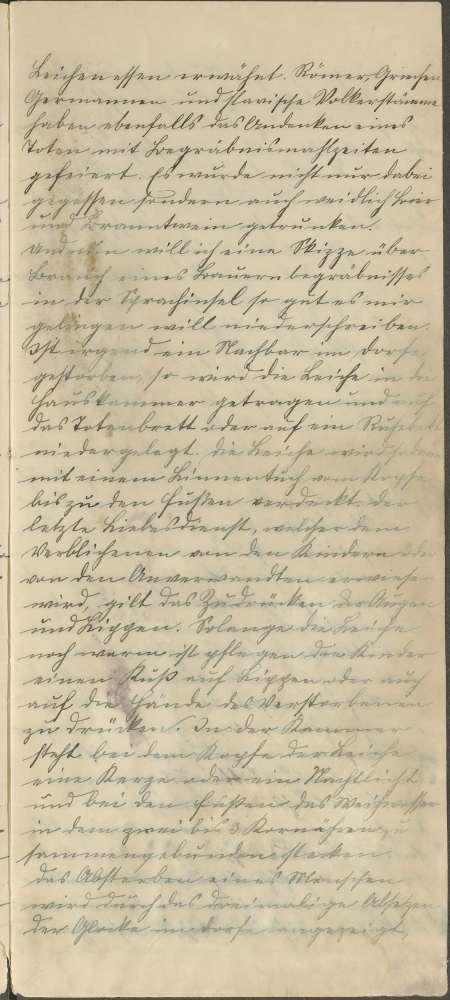 Leichenessen erwähnt. Römer, Griechen
Germannen und slavische Volkerstämme
haben ebenfalls das Andenken eines
Toten mit Begräbnismahlzeiten
gefeiert. Es wurde nicht nur dabei
gegessen sondern auch weidlich Bier
und Branntwein getrunken.
Und nun will ich eine Skizze über
Brauch eines Bauernbegräbnisses
in der Sprachinsel so gut es mir
gelingen will niederschreiben.
Ist irgend ein Nachbar im Dorfe
gestorben, so wird die Leiche in die
Hauskammer getragen und auf
das Totenbrett oder auf ein Ruhebett
niedergelegt. Die Leiche wird sodann
mit einem Linnentuch vom Kopfe
bis zu den Fußen verdeckt. Der
letzte Liebesdienst, welcher dem
Verblichenen von den Kindern oder
von den Anverwandten erwiesen
wird, gilt das Zudrücken der Augen
und Lippen. Solange die Leiche
noch warm ist pflegen die Kinder
einen Kuß auf Lippen oder auch
auf die Hände des Verstorbenen
zu drücken. In der Kammer
steht bei dem Kopfe der Leiche
eine Kerze oder ein Nachtlicht
und bei den Fußen das Weihwasser
in dem zwei bis 3 Kornähren zu
sammengebunden stecken.
Das Absterben eines Menschen
wird durch das dreimalige Absetzen
der Glocke im Dorfe angezeigt,